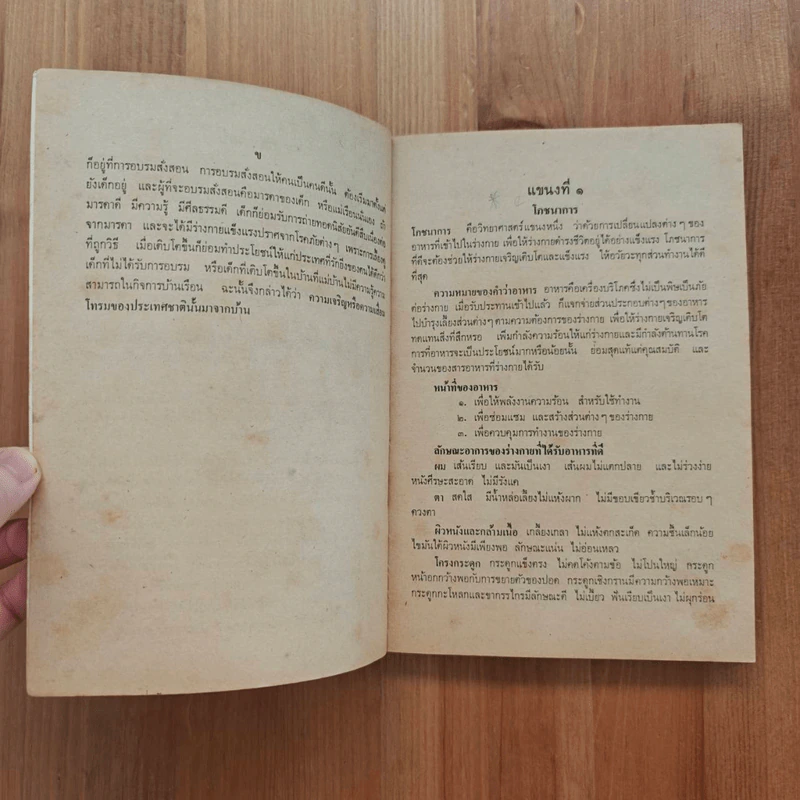 ข
ก็อยู่ที่การอบรมสั่งสอน การอบรมสั่งสอนให้คนเป็นคนดีนั้น ต้องเริ่มมาตั้งแต่
ยังเด็กอยู่ และผู้ที่จะอบรมสั่งสอนคือมารดาของเด็ก หรือแม่เรือนนั่นเอง ถ้า
มารดาดี มีความรู้ มีศีลธรรมดี เด็กก็ย่อมรับการถ่ายทอดนิสัยอันดีสืบเนื่องต่อ
จากมารดา และจะได้มีร่างกายแข็งแรงปราศจากโรคภัยต่างๆ เพราะการเลี้ยงดู
ที่ถูกวิธี เมื่อเติบโตขึ้นก็ย่อมทำประโยชน์ให้แก่ประเทศที่รักยิ่งของตนได้ดีกว่า
เด็กที่ไม่ได้รับการอบรม หรือเด็กที่เติบโตขึ้นในบ้านที่แม่บ้านไม่มีความรู้ความ
สามารถในกิจการบ้านเรือน ฉะนั้นจึงกล่าวได้ว่า ความเจริญหรือความเสื่อม
โทรมของประเทศชาตินั้นมาจากบ้าน
แขนงที่ ๑
โภชนาการ
โภชนาการ คือวิทยาศาสตร์แขนงหนึ่ง ว่าด้วยการเปลี่ยนแปลงต่างๆ ของ
อาหารที่เข้าไปในร่างกาย เพื่อให้ร่างกายดำรงชีวิตอยู่ได้อย่างแข็งแรง โภชนาการ
ที่ดีจะต้องช่วยให้ร่างกายเจริญเติบโตและแข็งแรง ให้อวัยวะทุกส่วนทำงานได้ดี
ที่สุด
ความหมายของคำว่าอาหาร อาหารคือเครื่องบริโภคซึ่งไม่เป็นพิษเป็นภัย
ต่อร่างกาย เมื่อรับประทานเข้าไปแล้ว ก็แจกจ่ายส่วนประกอบต่างๆ ของอาหาร
ไปบำรุงเลี้ยงส่วนต่างๆ ตามความต้องการของร่างกาย เพื่อให้ร่างกายเจริญเติบโต
ทดแทนสิ่งที่สึกหรอ เพิ่มกำลังความร้อนให้แก่ร่างกายและมีกำลังต้านทานโรค
การที่อาหารจะเป็นประโยชน์มากหรือน้อยนั้น ย่อมสุดแท้แต่คุณสมบัติ และ
จำนวนของสารอาหารที่ร่างกายได้รับ
หน้าที่ของอาหาร
๑. เพื่อให้พลังงานความร้อน สำหรับใช้ทำงาน
๒. เพื่อซ่อมแซม และสร้างส่วนต่างๆ ของร่างกาย
๓. เพื่อควบคุมการทำงานของร่างกาย
ลักษณะอาการของร่างกายที่ได้รับอาหารที่ดี
ผม เส้นเรียบ และมันเป็นเงา เส้นผมไม่แตกปลาย และไม่ร่วงง่าย
หนังศีรษะสะอาด ไม่มีรังแค
ตา สดใส มีน้ำหล่อเลี้ยงไม่แห้งผาก ไม่มีขอบเขียวช้ำบริเวณรอบๆ
ดวงตา
ผิวหนังและกล้ามเนื้อ เกลี้ยงเกลา ไม่แห้งตกสะเก็ด ความชื้นเล็กน้อย
ไขมันใต้ผิวหนังมีเพียงพอ ลักษณะแน่น ไม่อ่อนเหลว
โครงกระดูก กระดูกแข็งตรง ไม่คดโค้งตามข้อ ไม่โปนใหญ่ กระดูก
หน้าอกกว้างพอกับการขยายตัวของปอด กระดูกเชิงกรานมีความกว้างพอเหมาะ
กระดูกกะโหลกและขากรรไกรมีลักษณะดี ไม่เบี้ยว ฟันเรียบเป็นเงา ไม่ผุกร่อน